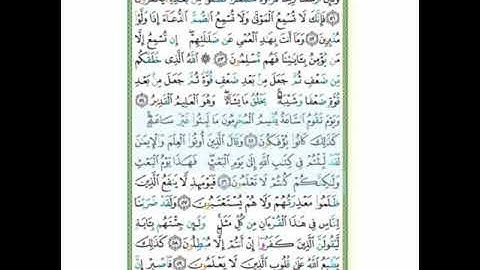 فَإِنَّكَ لَا تُسْمِعُ الْمَوْتَىٰ وَلَا تُسْمِعُ الصُّمَّ الدُّعَاءَ إِذَا وَلَّوْا
مُدْبِرِينَ ۝٥٢ وَمَا أَنتَ بِهَادِ الْعُمْيِ عَن ضَلَالَتِهِمْ ۖ إِن تُسْمِعُ إِلَّا
مَن يُؤْمِنُ بِآيَاتِنَا فَهُم مُّسْلِمُونَ ۝٥٣ اللَّهُ الَّذِي خَلَقَكُم
مِّن ضَعْفٍ ثُمَّ جَعَلَ مِن بَعْدِ ضَعْفٍ قُوَّةً ثُمَّ جَعَلَ مِن بَعْدِ
قُوَّةٍ ضَعْفًا وَشَيْبَةً ۚ يَخْلُقُ مَا يَشَاءُ ۖ وَهُوَ الْعَلِيمُ الْقَدِيرُ ۝٥٤
وَيَوْمَ تَقُومُ السَّاعَةُ يُقْسِمُ الْمُجْرِمُونَ مَا لَبِثُوا غَيْرَ سَاعَةٍ ۚ
كَذَٰلِكَ كَانُوا يُؤْفَكُونَ ۝٥٥ وَقَالَ الَّذِينَ أُوتُوا الْعِلْمَ وَالْإِيمَانَ
لَقَدْ لَبِثْتُمْ فِي كِتَابِ اللَّهِ إِلَىٰ يَوْمِ الْبَعْثِ ۖ فَهَٰذَا يَوْمُ الْبَعْثِ
وَلَٰكِنَّكُمْ كُنتُمْ لَا تَعْلَمُونَ ۝٥٦ فَيَوْمَئِذٍ لَّا يَنفَعُ الَّذِينَ
ظَلَمُوا مَعْذِرَتُهُمْ وَلَا هُمْ يُسْتَعْتَبُونَ ۝٥٧ وَلَقَدْ ضَرَبْنَا
لِلنَّاسِ فِي هَٰذَا الْقُرْآنِ مِن كُلِّ مَثَلٍ ۚ وَلَئِن جِئْتَهُم بِآيَةٍ
لَّيَقُولَنَّ الَّذِينَ كَفَرُوا إِنْ أَنتُمْ إِلَّا مُبْطِلُونَ ۝٥٨ كَذَٰلِكَ
يَطْبَعُ اللَّهُ عَلَىٰ قُلُوبِ الَّذِينَ لَا يَعْلَمُونَ ۝٥٩ فَاصْبِرْ إِنَّ